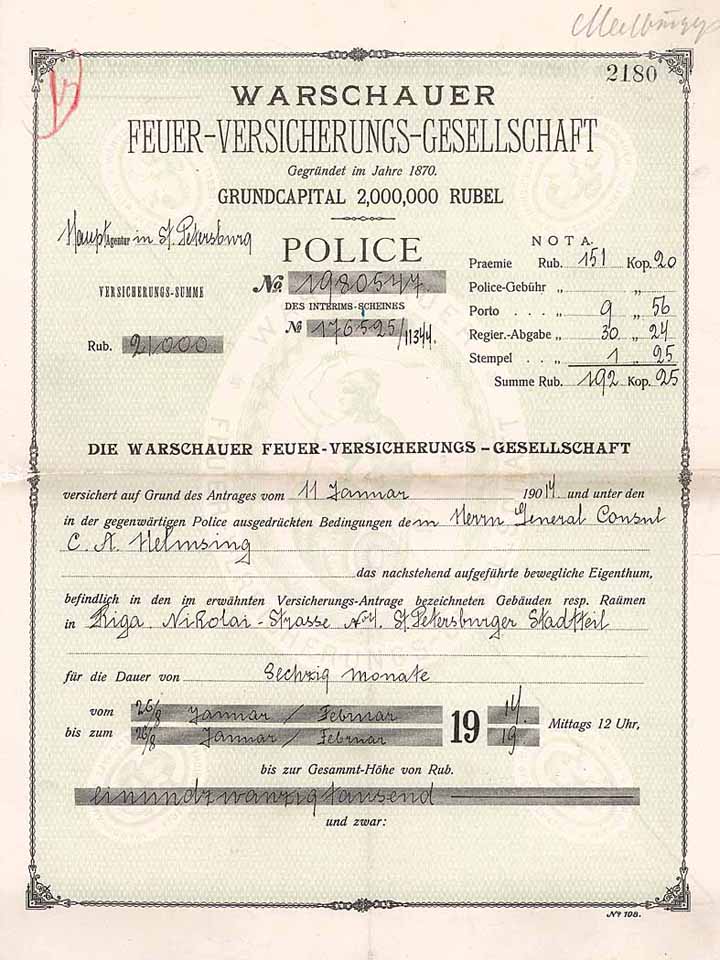 2180
WARSCHAUER
FEUER-VERSICHERUNGS-GESELLSCHAFT
Gegründet im Jahre 1870.
GRUNDCAPITAL 2,000,000 RUBEL
HauptAgentur in St. Petersburg
POLICE
No. 1980547
DES INTERIMS-SCHEINES
No 176525/11344.
VERSICHERUNGS-SUMME
Rub. 21000.
NOTA.
Praemie Rub. 151 Kop. 20
Police-Gebühr „ „
Porto . . . . „ 9 „ 56
Regier.-Abgabe „ 30 „ 24
Stempel . . . „ 1 „ 25
Summe Rub. 192 Kop. 25
DIE WARSCHAUER FEUER-VERSICHERUNGS-GESELLSCHAFT
versichert auf Grund des Antrages vom 11 Januar 19014 und unter den
in der gegenwärtigen Police ausgedrückten Bedingungen dem Herrn General Consul
C. A. Helmsing
das nachstehend aufgeführte bewegliche Eigenthum,
befindlich in den im erwähnten Versicherungs-Antrage bezeichneten Gebäuden resp. Raümen
in Riga. Nikolai-Strasse St. Petersburger Stadtteil
für die Dauer von Sechzig Monate
vom 26/8 Januar / Februar 1914.
bis zum 26/8 Januar / Februar 19. Mittags 12 Uhr,
bis zur Gesammt-Höhe von Rub.
einundzwanzigtausend
und zwar:
No 108.